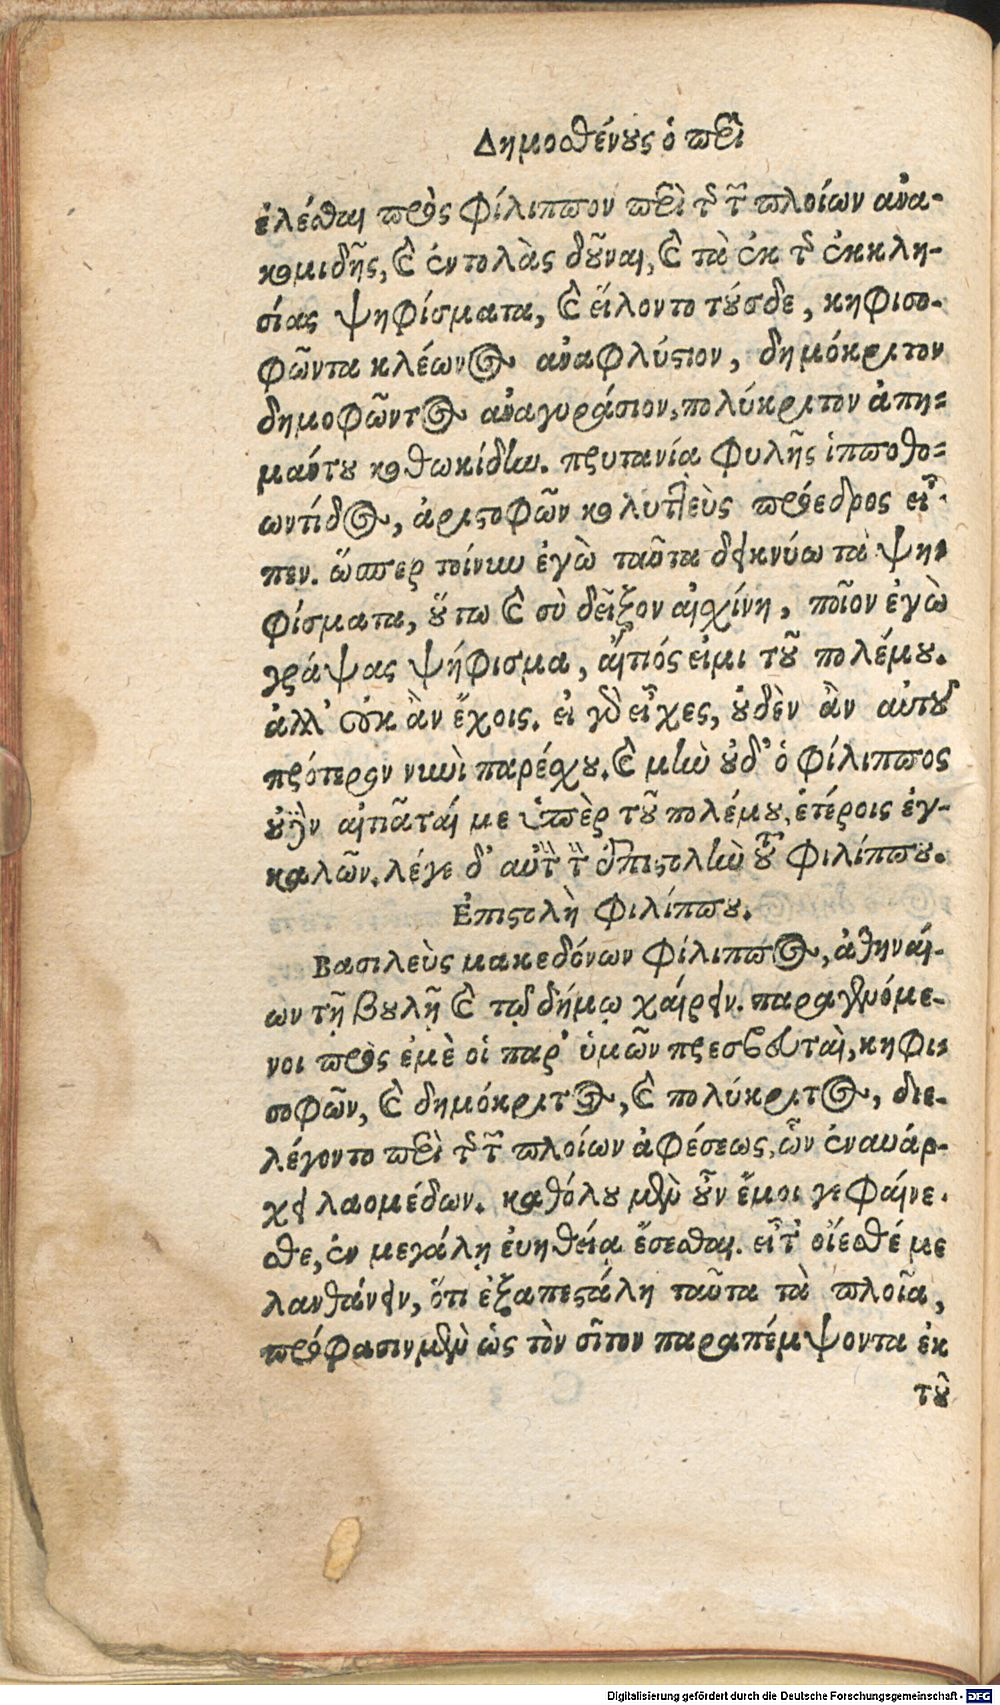 Δημοσθένους ὁ περὶ
ἑλέσθαι πρὸς Φίλιππον περὶ τῆς τῶν πλοίων ἀνα-
κομιδῆς, καὶ ἐντολὰς δοῦναι, καὶ τὰ ἐκ τῆς ἐκκλη-
σίας ψηφίσματα, καὶ εἵλοντο τούσδε, κηφισο-
φῶντα κλέωνος ἀναφλύστιον, δημόκριτον
δημοφῶντος ἀναγυράσιον, πολύκριτον ἀπη-
μάντου κοθωκίδην. πρυτανία φυλῆς ἱπποθο-
ωντίδος, ἀριστοφῶν κολυττεὺς πρόεδρος εἶ-
πεν. ὥσπερ τοίνυν ἐγὼ ταῦτα δεικνύω τὰ ψη-
φίσματα, οὕτω καὶ σὺ δεῖξον αἰσχίνη, ποῖον ἐγὼ
γράψας ψήφισμα, αἴτιός εἰμι τοῦ πολέμου.
ἀλλ' οὐκ ἂν ἔχοις. εἰ γὰρ εἶχες, οὐδὲν ἂν αὐτοῦ
πρότερον νυνὶ παρέσχου. καὶ μὴν οὐδ' ὁ Φίλιππος
οὐδὲν αἰτιᾶταί με ὑπὲρ τοῦ πολέμου, ἑτέροις ἐγ-
καλῶν. λέγε δ' αὐτὴν τὴν ἐπιστολὴν τοῦ Φιλίππου.
Ἐπιστολὴ Φιλίππου.
Βασιλεὺς μακεδόνων Φίλιππος, ἀθηναί-
ων τῇ βουλῇ καὶ τῷ δήμῳ χαίρειν. παραγενόμε-
νοι πρὸς ἐμὲ οἱ παρ' ὑμῶν πρεσβευταὶ, κηφι-
σοφῶν, καὶ δημόκριτος, καὶ πολύκριτος, διε-
λέγοντο περὶ τῆς τῶν πλοίων ἀφέσεως, ὧν ἐναυάρ-
χει λαομέδων. καθόλου μὲν οὖν ἔμοι γε φαίνε-
σθε, ἐν μεγάλῃ ἐυηθείᾳ ἔσεσθαι. εἴ τ' οἴεσθέ με
λανθάνειν, ὅτι ἐξαπεστάλη ταῦτα τὰ πλοῖα,
πρόφασιν μὲν ὡς τὸν σῖτον παραπέμψοντα ἐκ
τοῦ
Digitalisierung gefördert durch die Deutsche Forschungsgemeinschaft - DFG